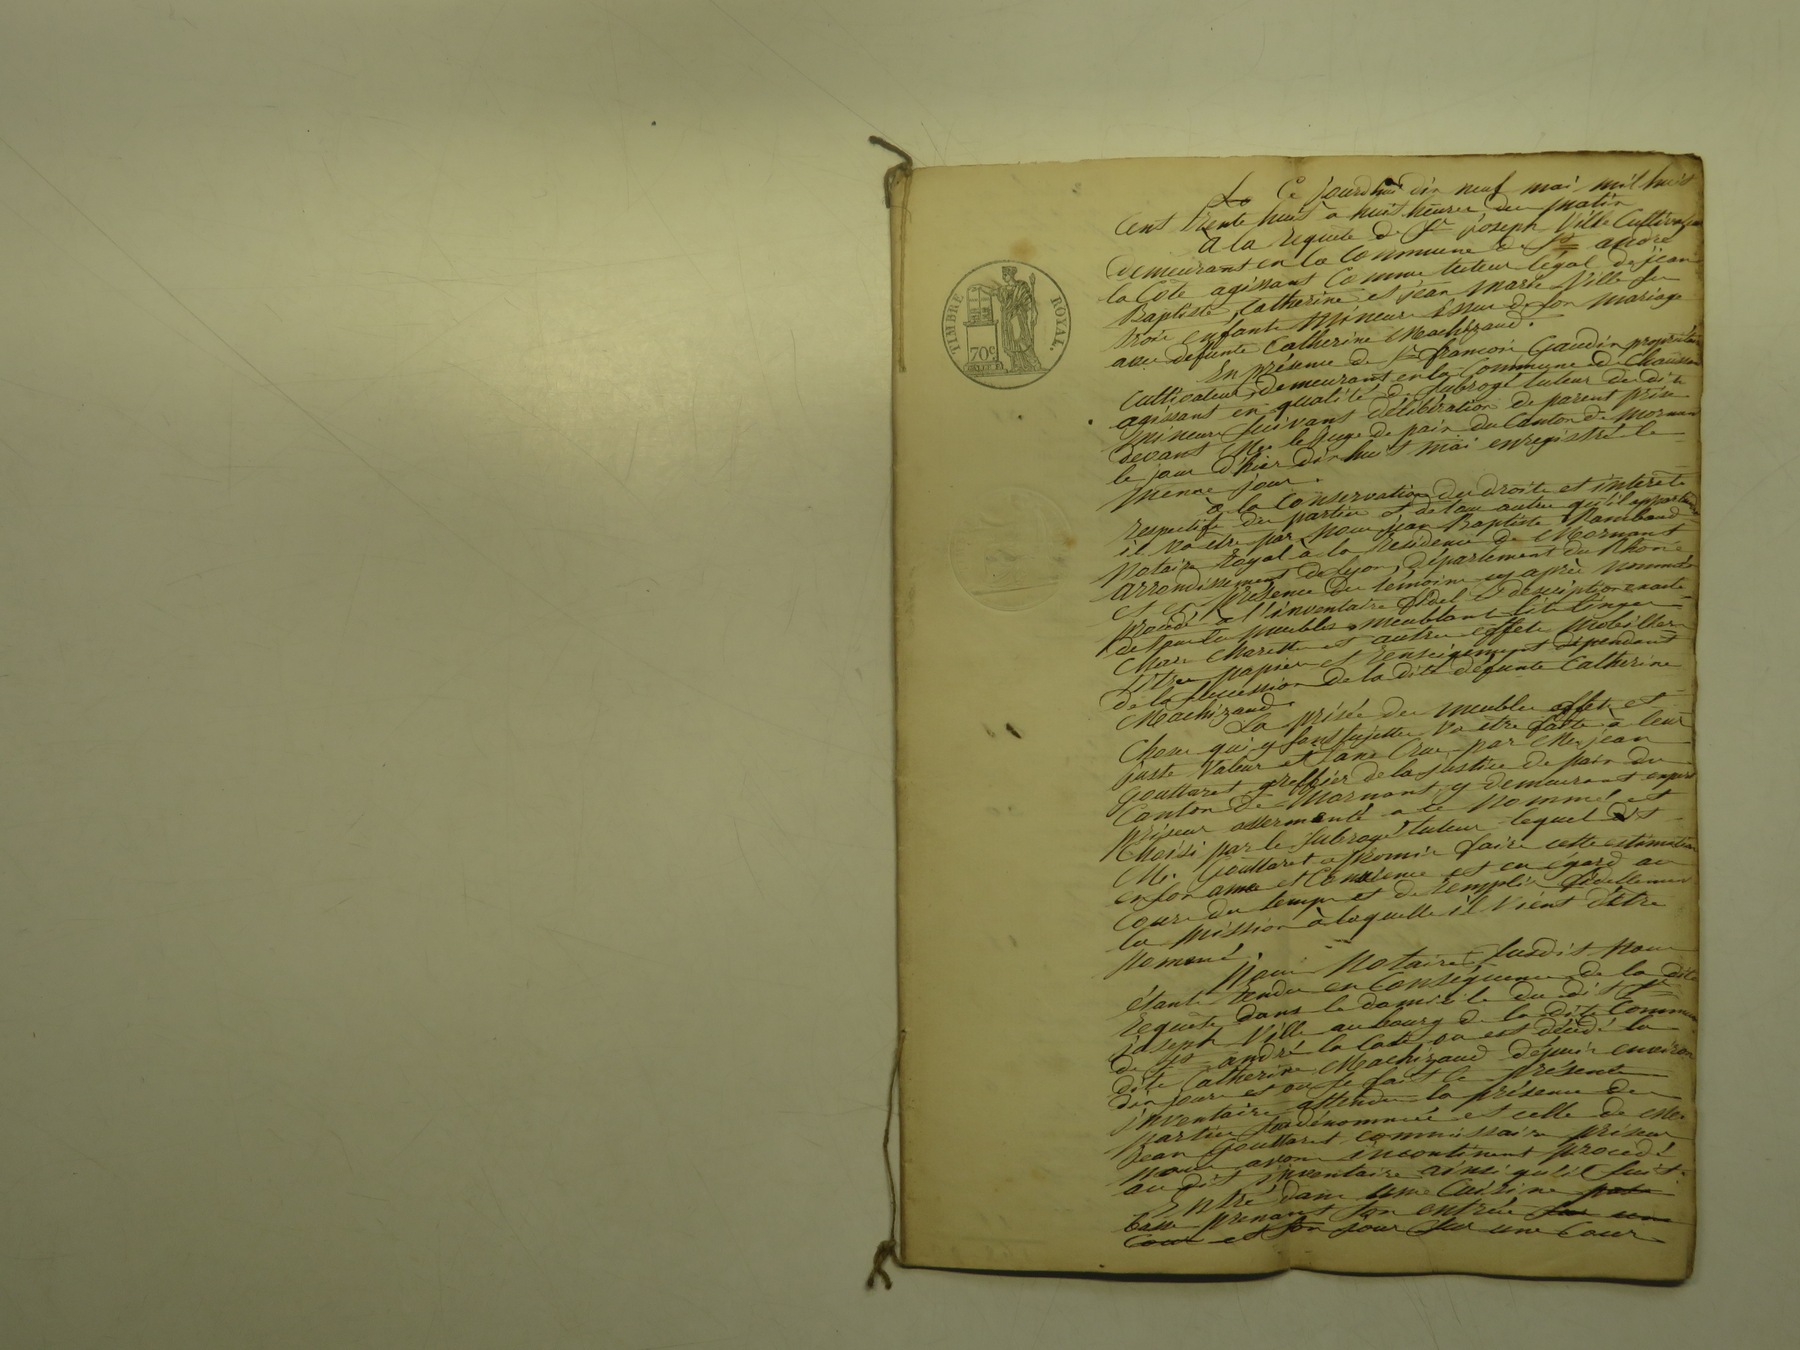 TIMBRE ROYAL.
70c
Ce jourdhui dix neuf mai mil huit
cent trente huit a huit heures du matin
à la requête de Sr joseph Ville Cultivateur
demeurant en la Commune de St andré
la Côte agissant Comme tuteur légal de jean
Baptiste, Catherine et jean marie Ville ses
trois enfants mineurs issus de son mariage
avec defunte Catherine Machizaud.
En présence de Sr françois Gaudin propriétaire
Cultivateur demeurant en la Commune de Chaussan
agissant en qualité de subrogé tuteur desdits
mineurs suivant délibération de parents prise
devant Mr le juge de paix du Canton de Mornant
le jour d'hier dix huit mai enregistré le
même jour.
à la Conservation des droits et intérêts
respectifs des parties et de tous autres qu'il appartiendra
il va être par nous jean Baptiste Rambaud
Notaire Royal à la résidence de Mornant
arrondissement de Lyon, département du Rhône
et en présence des témoins cy après nommés
procédé à l'inventaire fidel et description exacte
de tous les meubles meublant lits linges
et autres effets mobiliers
titres papiers et renseignements dépendant
de la succession de la dite defunte Catherine
Machizaud.
La prisée des meubles effets et
Choses qui y sont sujettes va être faite à leur
juste Valeur et sans Crue par Me jean
Gouttaret greffier de la justice de paix du
Canton de Mornant y demeurant expert
priseur assermenté a ce nommé et
Choisi par le subrogé tuteur lequel dit
Me Gouttaret a promis faire cette estimation
en son ame et Conscience et eu égard au
cours du temps et de remplir fidellement
la mission à laquelle il vient d'être
nommé.
Nous Notaire susdit nous
étant rendu en Conséquence de la dite
requête dans le domicile du dit Sr
joseph Ville au bourg de la dite Commune
de St andré la Côte ou est décédé la
dite Catherine Machizaud depuis environ
dix jours et ou se fait le présent
inventaire attendu la présence des
parties susdénommées et celle de Me
Jean Gouttaret commissaire priseur
nous avons incontinent procédé
au dit inventaire ainsi qu'il suit.
Entré dans une Cuisine
basse prenant son entrée sur une
Cour et son jour sur une Cour